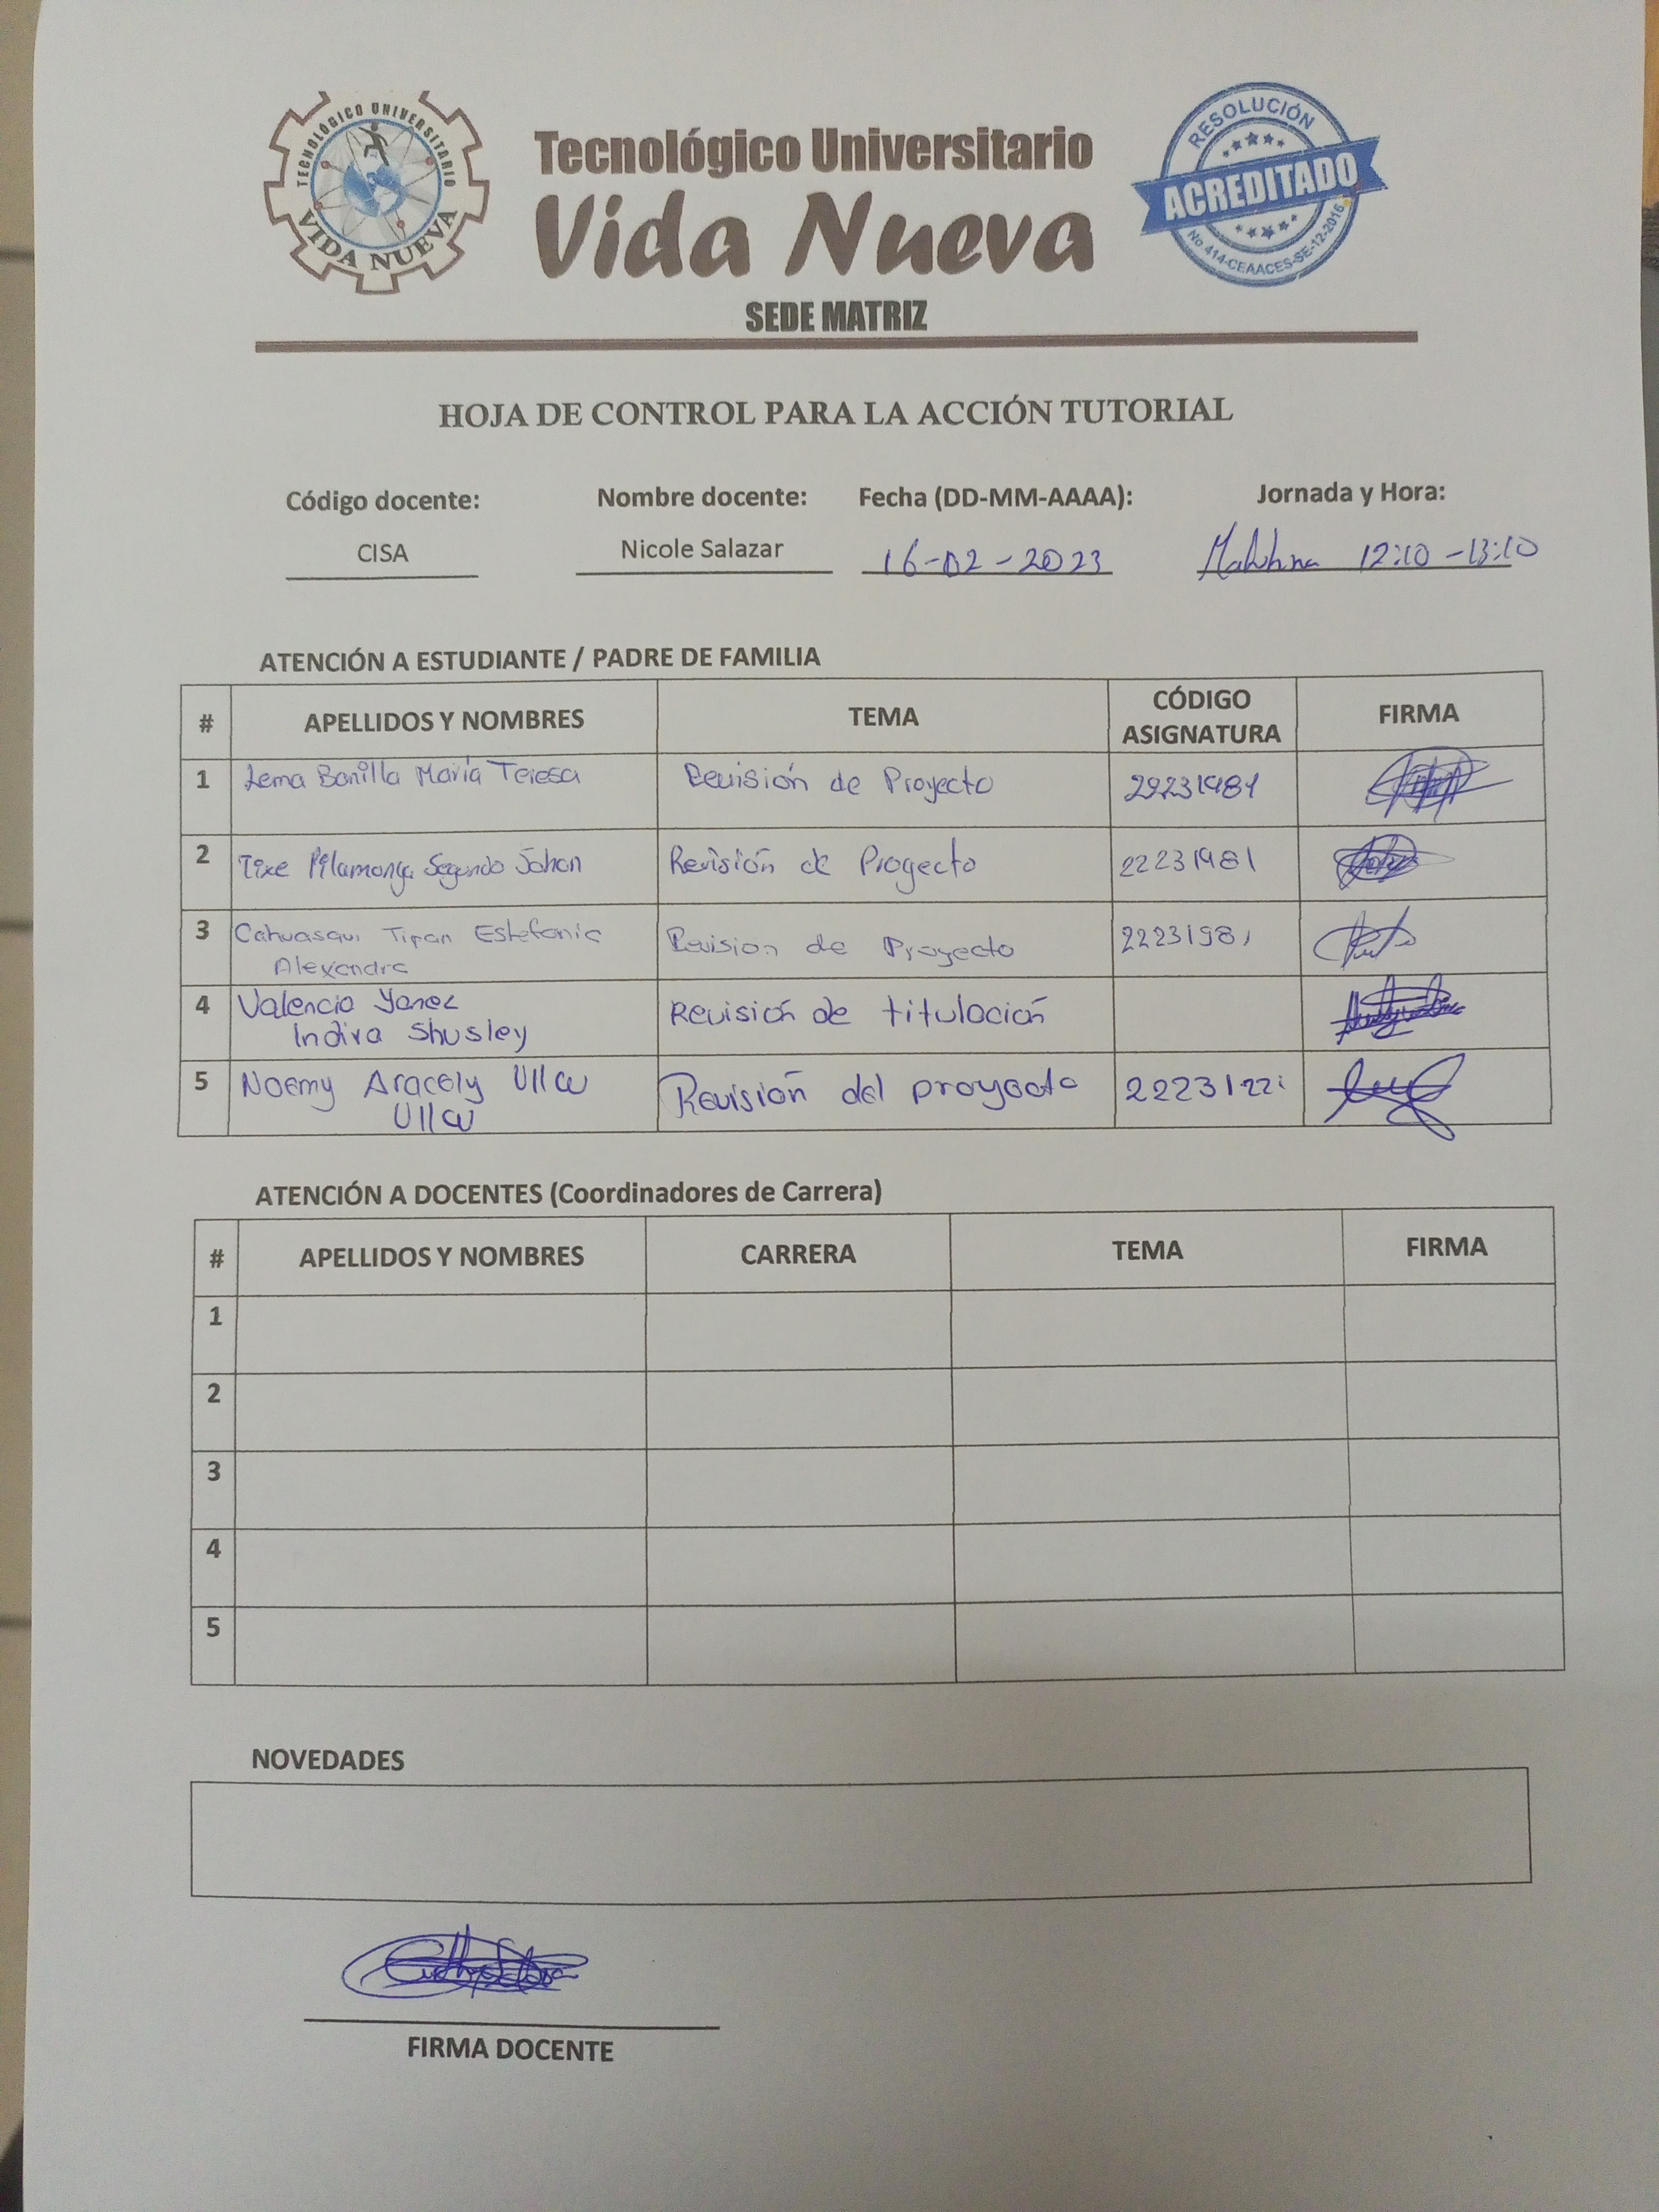 TECNOLÓGICO UNIVERSITARIO
VIDA NUEVA
Tecnológico Universitario
Vida Nueva
SEDE MATRIZ
RESOLUCIÓN
ACREDITADO
No 414-CEAACES-SE-12-2016
HOJA DE CONTROL PARA LA ACCIÓN TUTORIAL
Código docente: Nombre docente: Fecha (DD-MM-AAAA): Jornada y Hora:
CISA Nicole Salazar 16-02-2023 12:10-13:10
ATENCIÓN A ESTUDIANTE / PADRE DE FAMILIA
# APELLIDOS Y NOMBRES TEMA CÓDIGO ASIGNATURA FIRMA
1 Lema Bonilla María Teresa Revisión de Proyecto 22231981
2 Tixe Pilamunga Segundo Johon Revisión de Proyecto 22231981
3 Cahuasqui Tipan Estefania Revision de Proyecto 22231981
Alexandra
4 Valencia Yanez Revisión de titulación
Indira Shusley
5 Noemy Aracely Ullcu Revisión del proyecto 2223122
Ullcu
ATENCIÓN A DOCENTES (Coordinadores de Carrera)
# APELLIDOS Y NOMBRES CARRERA TEMA FIRMA
1
2
3
4
5
NOVEDADES
FIRMA DOCENTE